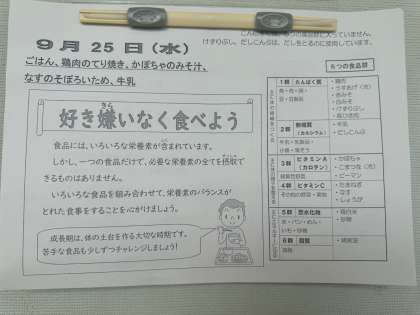 けずりぶし、だしこんぶは、だしをとるのに使用しています。
9月 25 日（水）
ごはん、鶏肉のてり焼き、かぼちゃのみそ汁、
なすのそぼろいため、牛乳
好き嫌いなく食べよう
食品には、いろいろな栄養素が含まれています。
しかし、一つの食品だけで、必要な栄養素の全てを摂取で
きるものはありません。
いろいろな食品を組み合わせて、栄養素のバランスが
とれた食事をすることを心がけましょう。
成長期は、体の土台を作る大切な時期です。
苦手な食品も少しずつチャレンジしましょう！
6つの食品群
1群 たんぱく質
魚・肉・卵・
豆・豆製品
・鶏肉
・うすあげ（大）
・赤みそ
・白みそ
・けずりぶし
2群 無機質
（カルシウム）
牛乳・乳製品・
小魚・海そう
・牛乳
・だしこんぶ
3群 ビタミンA
（カロテン）
緑黄色野菜
・かぼちゃ
・こまつな（冷）
・ピーマン
4群 ビタミンC
その他の野菜・果物
・たまねぎ
・なす
・しょうが
5群 炭水化物
米・パン・めん・
いも・砂糖
・精白米
・砂糖
6群 脂質
油脂